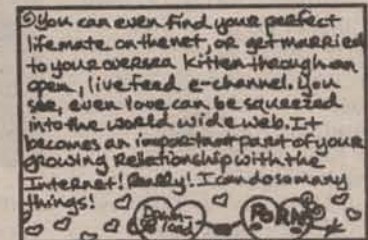 ⑥ You can even find your perfect
life mate on the net, or get married
to your oversea kitten through an
open, live feed e-channel. You
see, even love can be squeezed
into the world wide web. It
becomes an important part of your
growing Relationship with the
Internet! Really! I can do so many
things!
Down-
load
PORN